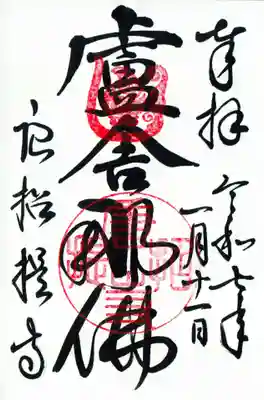 奉拝
令和七年
一月十一日
盧舎那佛
唐招提寺